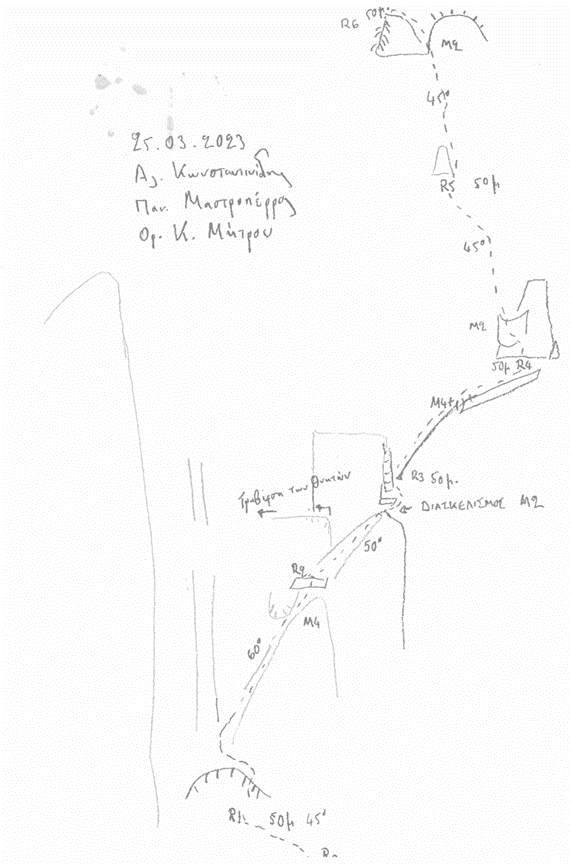 R6 50μ
M2
45°
25.03.2023
Αλ. Κωνσταντινίδης
Παν. Μαστροπέρρος
Ορ. Κ. Μήτρου
R5 50μ
45°
M2
50μ R4
M4+
R3 50μ.
Τραβέρσα των Θνητών
← ΔΙΑΣΚΕΛΙΣΜΟΣ M2
50°
R2
M4
60°
R1 50μ 45°
R